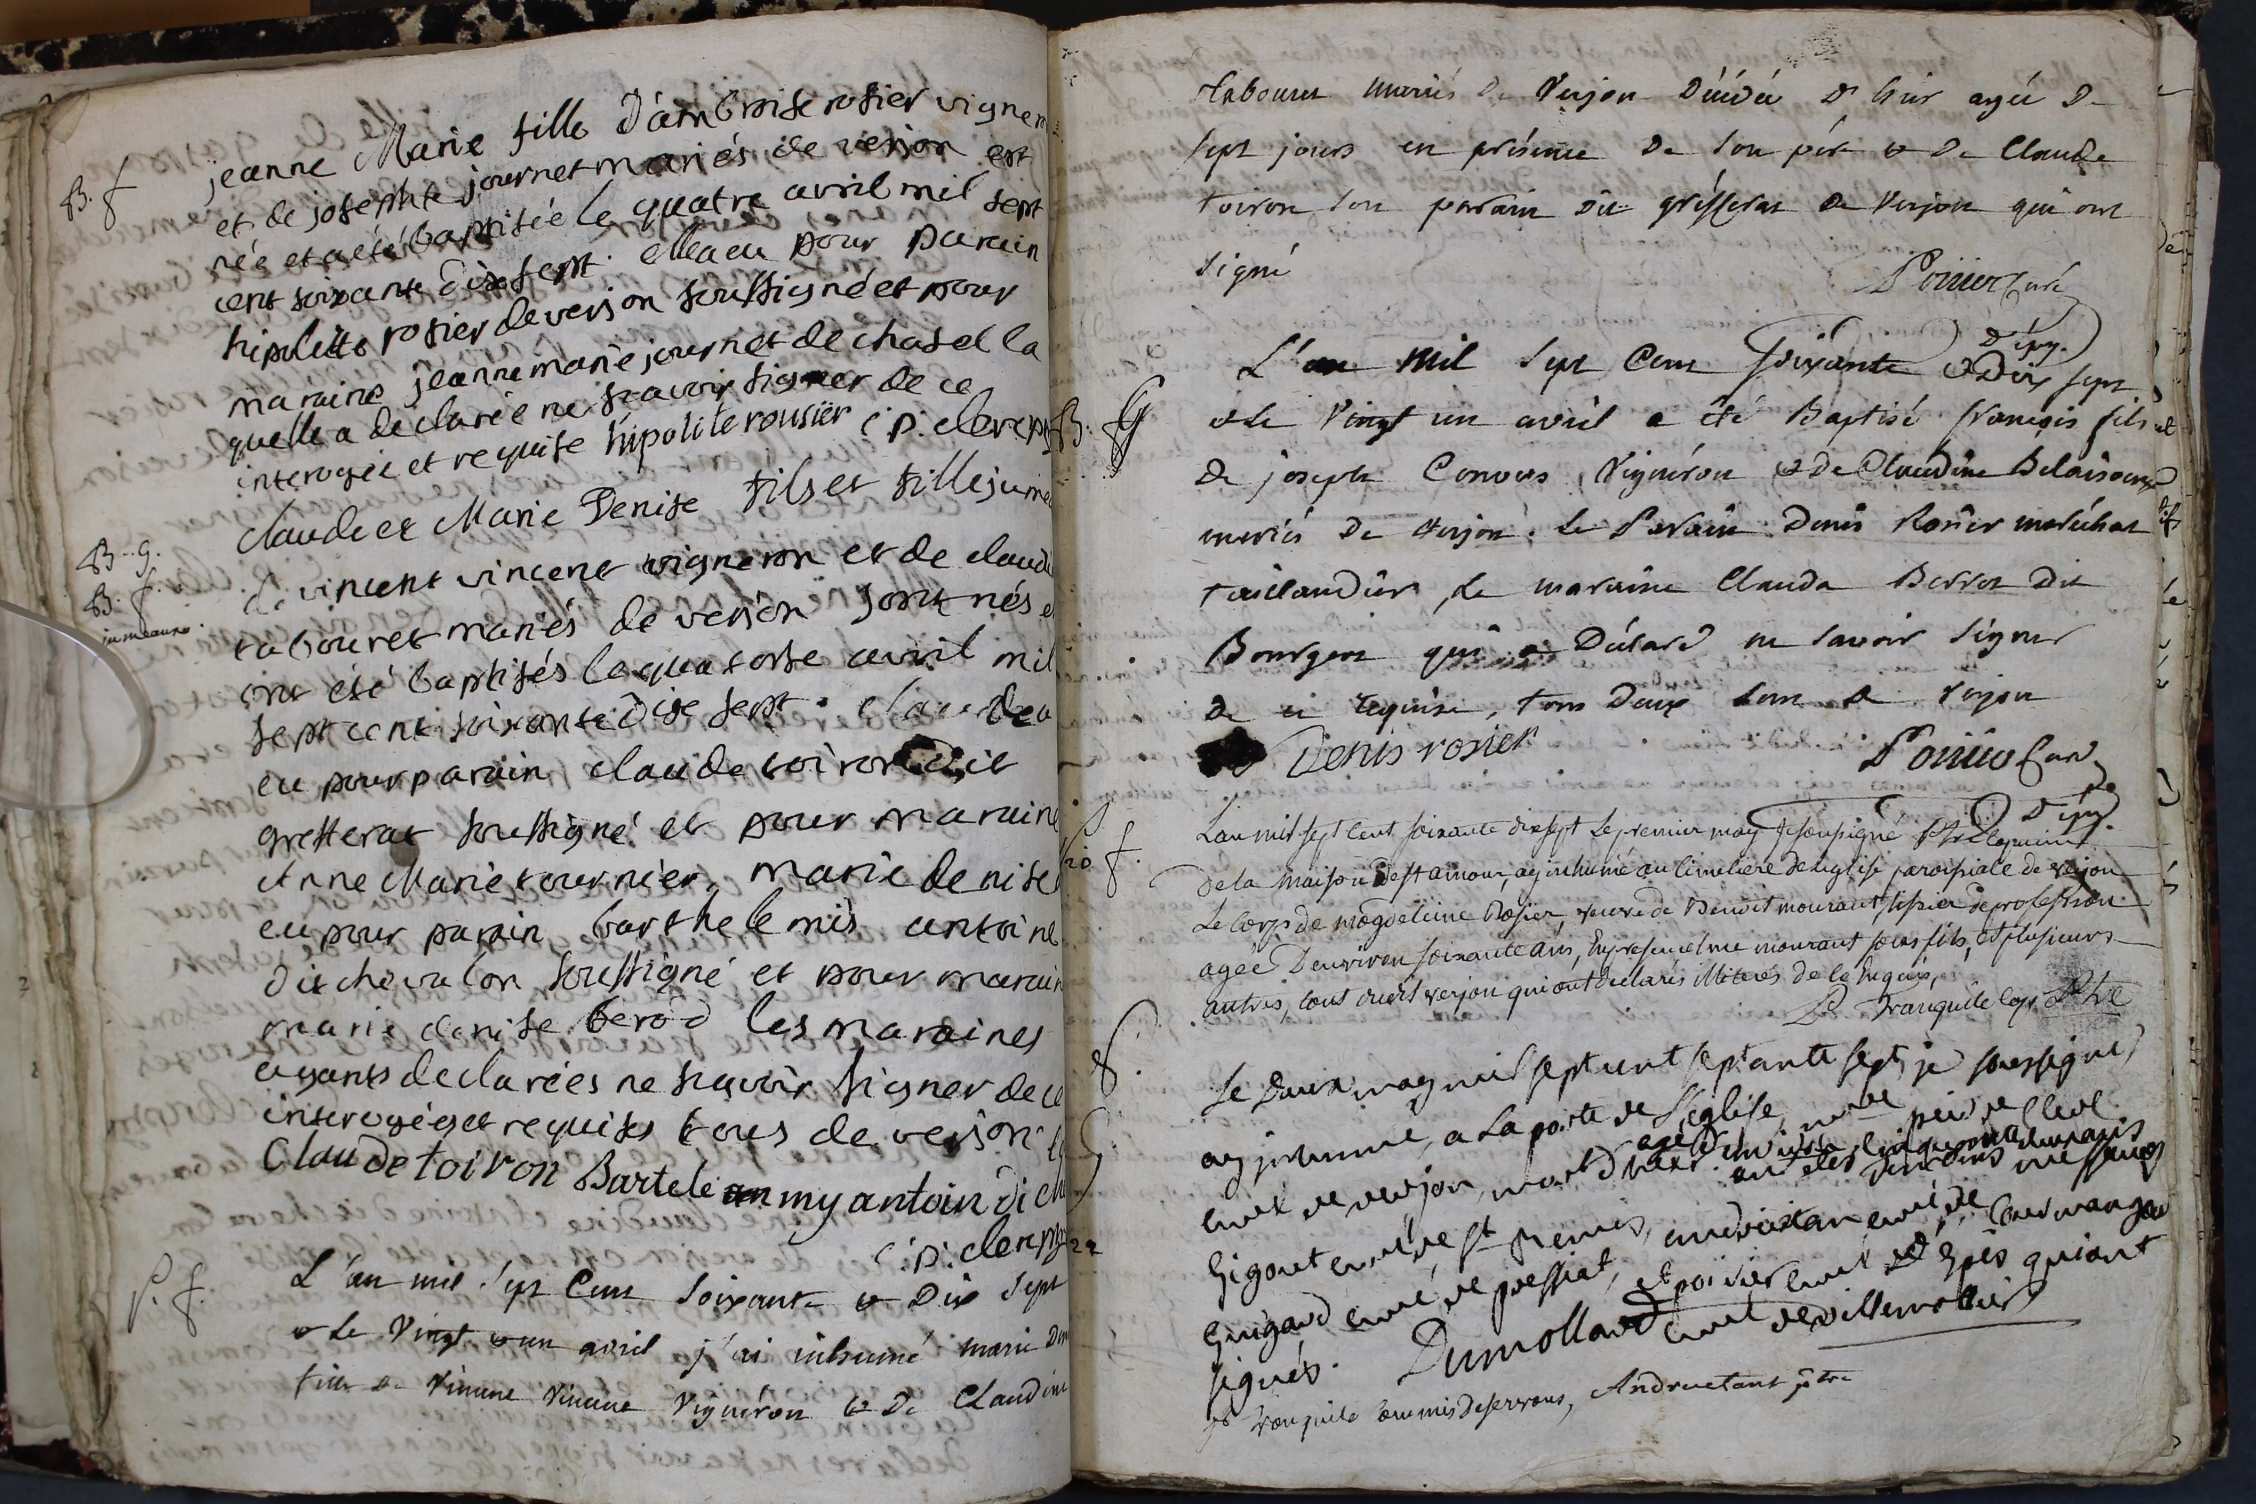 B. f
jeanne Marie fille d'ambroise rosier vigneron
et de josephte journet mariés de verjon est
née et a été baptisée le quatre avril mil sept
cent soixante dix sept. elle a eu pour parain
hipolitte rosier de verjon soussigné et pour
maraine jeanne marie journet de chasel la
quelle a declarée ne scavoir signer de ce
interogée et requise hipolite rousier c. p. clerc
B. g.
B. f.
jumeaux.
claude et Marie Denise fils et fille jumeaux
de vincent vincent vigneron et de claudi
tabouret mariés de verjon sont nés et
ont été baptisés le quatorse avril mil
sept cent soixante dix sept. claude a
eu pour parain claude toiron dit
gresserat soussigné et pour maraine
Anne Marie tournier, marie denise
eu pour parain barthelemis antoine
dit chevalon soussigné et pour maraine
marie denise berod les maraines
ayants declarées ne scavoir signer de ce
interogées et requises tous de verjon
Claude toiron Bartelemy antoin di che
c. p. clerc
S. f.
L'an mil sept Cent soixante et Dix sept
et Le Vingt et un avril j'ai inhumé marie Den
fille de Vincent Vincent Vignéron et De Claudine
tabouret mariés De Verjon Décédée D'hier agée De
sept jours en présence De son pére et De Claude
toiron son parain dit grésserat De Verjon qui ont
signé
Poirier Curé
D'épy.
B. G
L'an Mil Sept Cent soixante et Dix sept
et Le Vingt un avril a été Baptisé françois fils
De joseph Convers Vignéron et De Claudine Belaisoux
mariés De Verjon. Le Parain Denis Rosier maréchal
taillandier, la maraine Clauda Berrod Dit
Bourgeon qui a Déclaré ne savoir signer
De ce requise, tous Deux sont De Verjon
Denis rosier
Poirier Curé
D'épy.
f.
L'an mil sept cent soixante dix sept le premier may Je soussigné Ptre Capucin
de la maison de St amour, ay inhumé au cimetiere de l'eglise paroissiale de verjon
Le corps de magdeleine Rosier, veuve de Benoit mourant tissier de profession
agée D'environ soixante ans, En presence de mourant son fils, et plusieurs
autres, tous dudit verjon qui ont declarés illiterés de ce Enquis,
P. Tranquile cap. Ptre
S.
G
Le Deux may mil sept cent septante sept je soussigné,
ay inhumé, a la porte de l'eglise,
curé de verjon, mort d'hier
agé d'environ cinquante
curé de St
guigard curé de pressiat, andruetan curé de Courmangoux
et poirier curé d'Epis qui ont
signés. Dumollard curé de villemotier
P. Tranquile commis desservant, Andruetant ptre